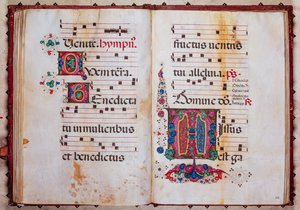 Venite. hympn.
Quem téra.
Benedicta
tu in mulieribus
et benedictus
fructus uentris
tui alleluia. ps.
Domine do
Missus
est ga